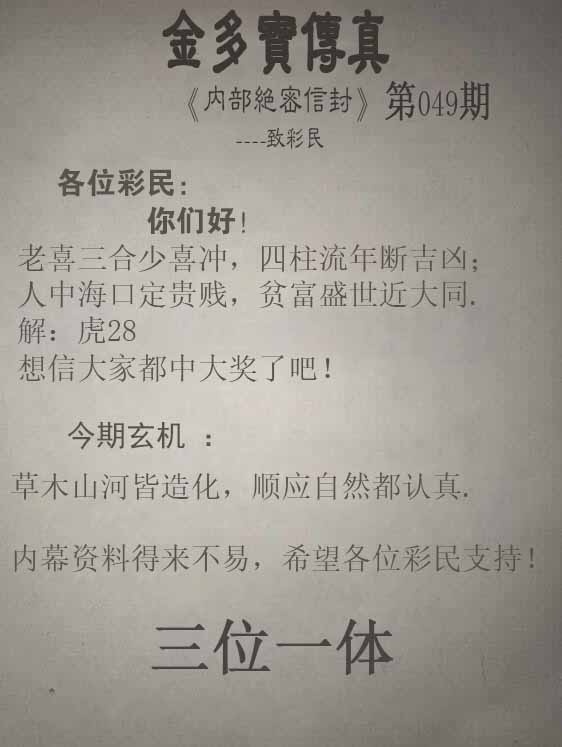 金多寶傳真
《内部絶密信封》第049期
----致彩民
各位彩民:
你们好!
老喜三合少喜冲，四柱流年断吉凶;
人中海口定贵贱，贫富盛世近大同.
解：虎28
想信大家都中大奖了吧!
今期玄机 ：
草木山河皆造化，顺应自然都认真.
内幕资料得来不易，希望各位彩民支持!
三位一体